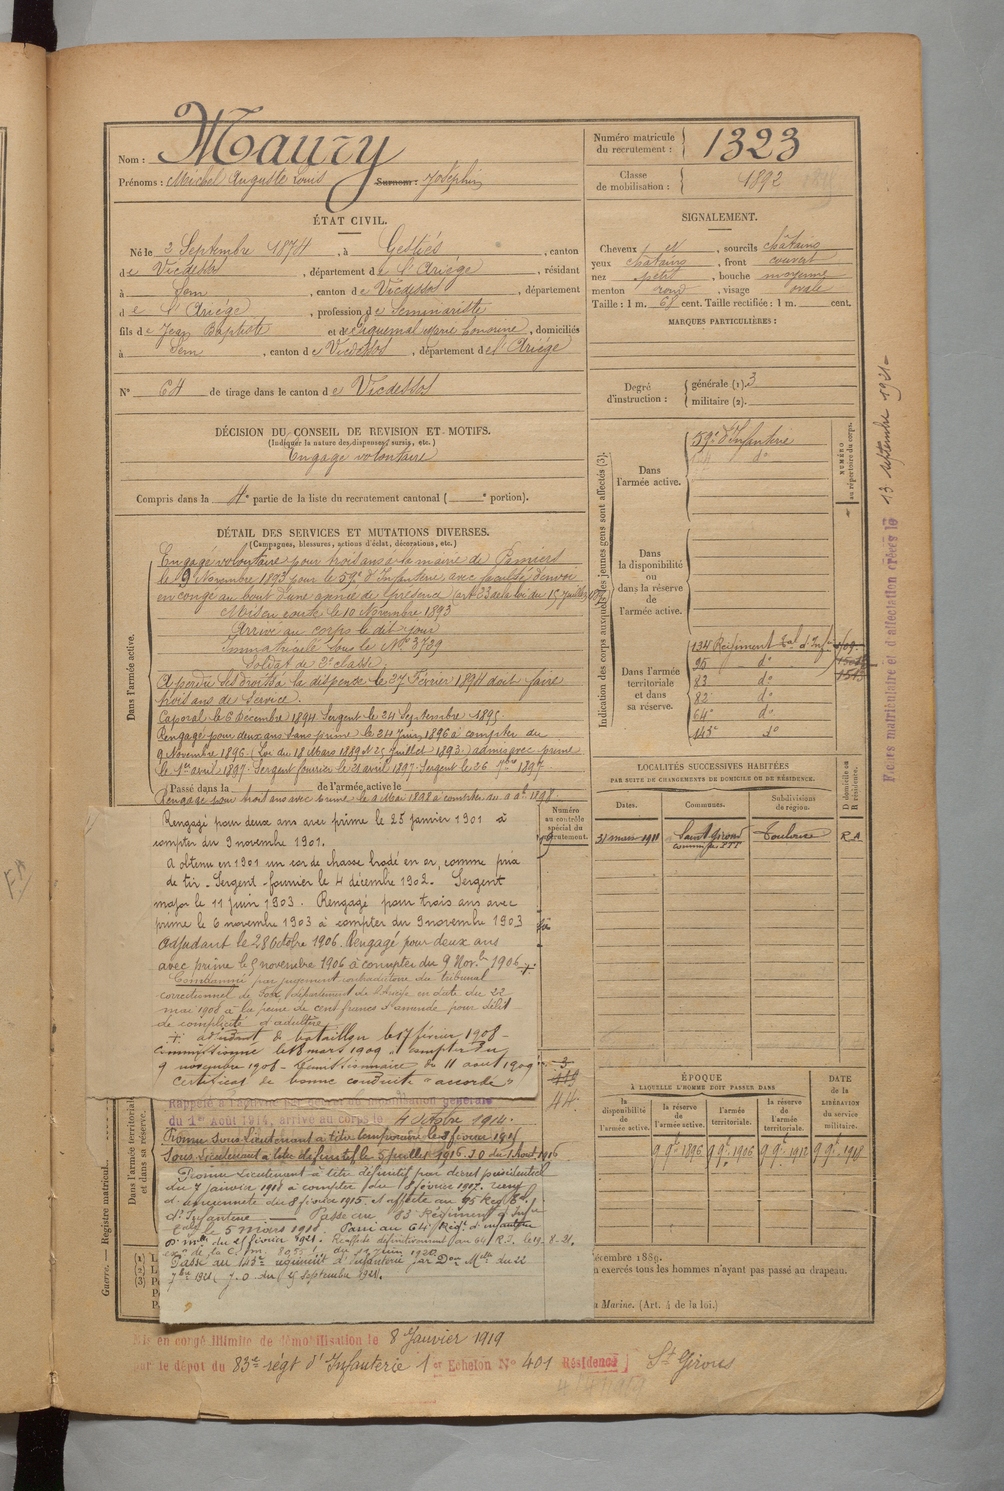 Nom : Maury
Prénoms : Michel Auguste Louis Surnom : Joséphin
Numéro matricule du recrutement : 1323
Classe de mobilisation : 1892
ÉTAT CIVIL.
Né le 2 Septembre 1874, à Gestiés, canton
de Vicdessos, département de l'Ariége, résidant
à Sem, canton de Vicdessos, département
de l'Ariége, profession de Séminariste
fils de Jean Baptiste et de Marie Honorine, domiciliés
à Sem, canton de Vicdessos, département de l'Ariége
N° 64 de tirage dans le canton de Vicdessos
SIGNALEMENT.
Cheveux et, sourcils châtains
yeux châtains, front couvert
nez petit, bouche moyenne
menton rond, visage ovale
Taille : 1 m. 68 cent. Taille rectifiée : 1 m. cent.
MARQUES PARTICULIÈRES :
Degré d'instruction : générale (1). 3
militaire (2).
DÉCISION DU CONSEIL DE REVISION ET MOTIFS.
(Indiquer la nature des dispenses, sursis, etc.)
Engagé volontaire
Compris dans la 4e partie de la liste du recrutement cantonal ( e portion).
DÉTAIL DES SERVICES ET MUTATIONS DIVERSES.
(Campagnes, blessures, actions d'éclat, décorations, etc.)
Dans l'armée active.
Engagé volontaire pour trois ans à la mairie de Pamiers
le 9 Novembre 1893 pour le 59e d'Infanterie, avec faculté d'envoi
en congé au bout d'une année de présence (art. 23 de la loi du 15 Juillet 1889)
Mis en route le 10 Novembre 1893
Arrivé au corps le dit jour
Immatriculé sous le No 3739
Soldat de 2e classe.
A perdu ses droits à la dispense le 27 Février 1894 doit faire
trois ans de service.
Caporal le 6 Décembre 1894 Sergent le 24 Septembre 1895.
Rengagé pour deux ans sans prime le 24 Juin 1896 à compter du
9 Novembre 1896. (Loi du 18 Mars 1889 et 25 Juillet 1893.) admis avec prime
le 1er avril 1897. Sergent fourrier le 21 avril 1897. Sergent le 26 7bre 1897.
Passé dans la de l'armée active le
Rengagé pour trois ans avec prime le 9 Mai 1898 à compter du 1898.
Rengagé pour deux ans avec prime le 25 janvier 1901 à
compter du 9 novembre 1901.
A obtenu en 1901 un cor de chasse brodé en or, comme prix
de tir. Sergent-fourrier le 4 décembre 1902. Sergent
major le 11 juin 1903. Rengagé pour trois ans avec
prime le 6 novembre 1903 à compter du 9 novembre 1903
Adjudant le 28 octobre 1906. Rengagé pour deux ans
avec prime le 5 novembre 1906 à compter du 9 Nov.bre 1906
Condamné par jugement contradictoire du tribunal
correctionnel de Foix, département de l'Ariège en date du 22
mai 1908 à la peine de cent francs d'amende pour délit
de complicité d'adultère
adjudant de bataillon le 17 février 1908 –
commissionné le 18 mars 1909 à compter du
9 novembre 1908 – démissionnaire du 11 août 1909
certificat de bonne conduite "accordé"
Numéro au contrôle spécial du recrutement.
3
44
Dans l'armée territoriale et dans sa réserve.
Rappelé à l'activité mobilisation générale
du 1er Août 1914, arrivé au corps le 4 octobre 1914.
Promu Sous-Lieutenant à titre temporaire le 8 février 1915
Sous-Lieutenant à titre définitif le 5 juillet 1916. J.O. du 1 Août 1916
Promu Lieutenant à titre définitif par décret présidentiel
du 7 janvier 1918 à compter du 8 février 1917. rang
d'ancienneté du 8 février 1915 et affecté au 95 Regt
d'Infanterie — Passé au 83 Régiment d'Infie
le 5 mars 1918 Passé au 64 Régt d'infanterie
du 21 février 1921. Réaffecté définitivement au 64 R.I. le 19.8.21.
Passé au 143e régiment d'Infanterie par Don Mlle du 12
7bre 1921. J.O. du 15 septembre 1921.
Mis en congé illimité de démobilisation le 8 Janvier 1919
par le dépôt du 83e régt d'Infanterie 1er Echelon N° 401 Résidence St Girons
Indication des corps auxquels les jeunes gens sont affectés (3).
Dans l'armée active.
59e d'Infanterie
do
NUMÉRO au répertoire du corps.
Dans la disponibilité ou dans la réserve de l'armée active.
Dans l'armée territoriale et dans sa réserve.
134 Régiment tal d'Infie
95 do
83 do
82 do
64e do
143e do
LOCALITÉS SUCCESSIVES HABITÉES
PAR SUITE DE CHANGEMENTS DE DOMICILE OU DE RÉSIDENCE.
Dates. Communes. Subdivisions de région. D domicile ou R résidence.
31 mars 1911 Saint Girons Toulouse R.A.
commis PTT
ÉPOQUE
À LAQUELLE L'HOMME DOIT PASSER DANS
la disponibilité de l'armée active. la réserve de l'armée active. l'armée territoriale. la réserve de l'armée territoriale.
DATE de la LIBÉRATION du service militaire.
9 9bre 1896 9 9bre 1906 9 9bre 1912 9 9bre 1918
décembre 1889.
n exercés tous les hommes n'ayant pas passé au drapeau.
a Marine. (Art. 4 de la loi.)
Guerre. — Registre matricul.
Fiches matriculaire et d'affectation créées le 13 septembre 1921